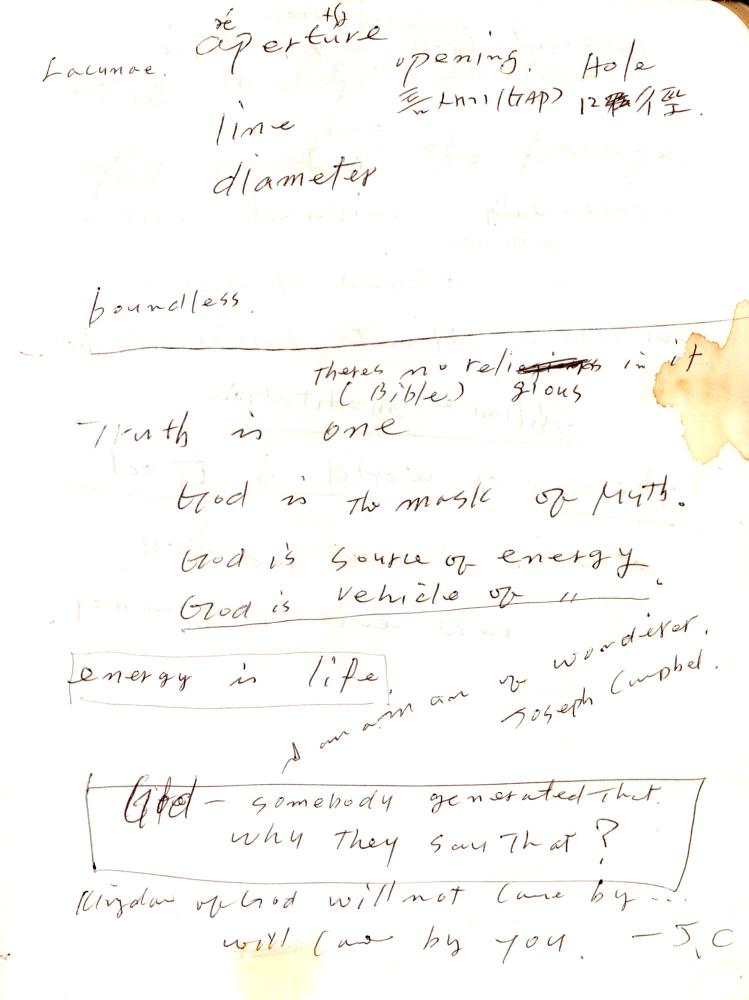 aperture
Lacunae.
opening. Hole
(GAP)
line
diameter
boundless.
Theres no religions in it
(Bible) gious
Truth is one
God is The mask of Myth.
God is source of energy
God is vehicle of 〃 .
energy is life
am of wonderer.
Joseph Campbel.
God - somebody generated That.
why They say That ?
Kingdom of God will not come by ...
will come by you. - J.C